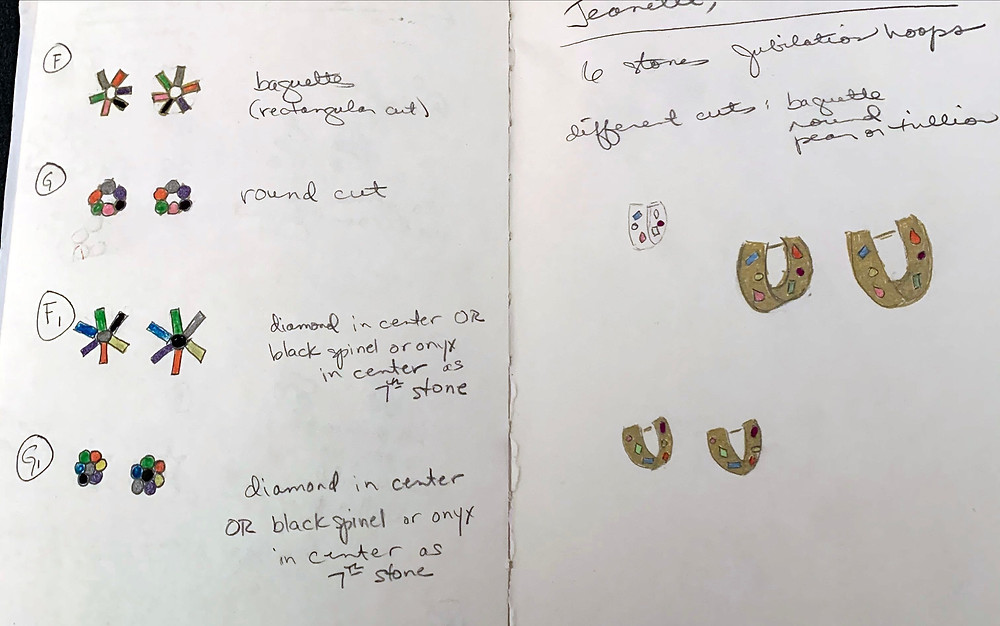 F
baguette
(rectangular cut)
G
round cut
F1
diamond in center OR
black spinel or onyx
in center as
7th stone
G1
diamond in center
OR black spinel or onyx
in center as
7th stone
6 stones Jubilation hoops
different cuts: baguette
round
pear or trillion